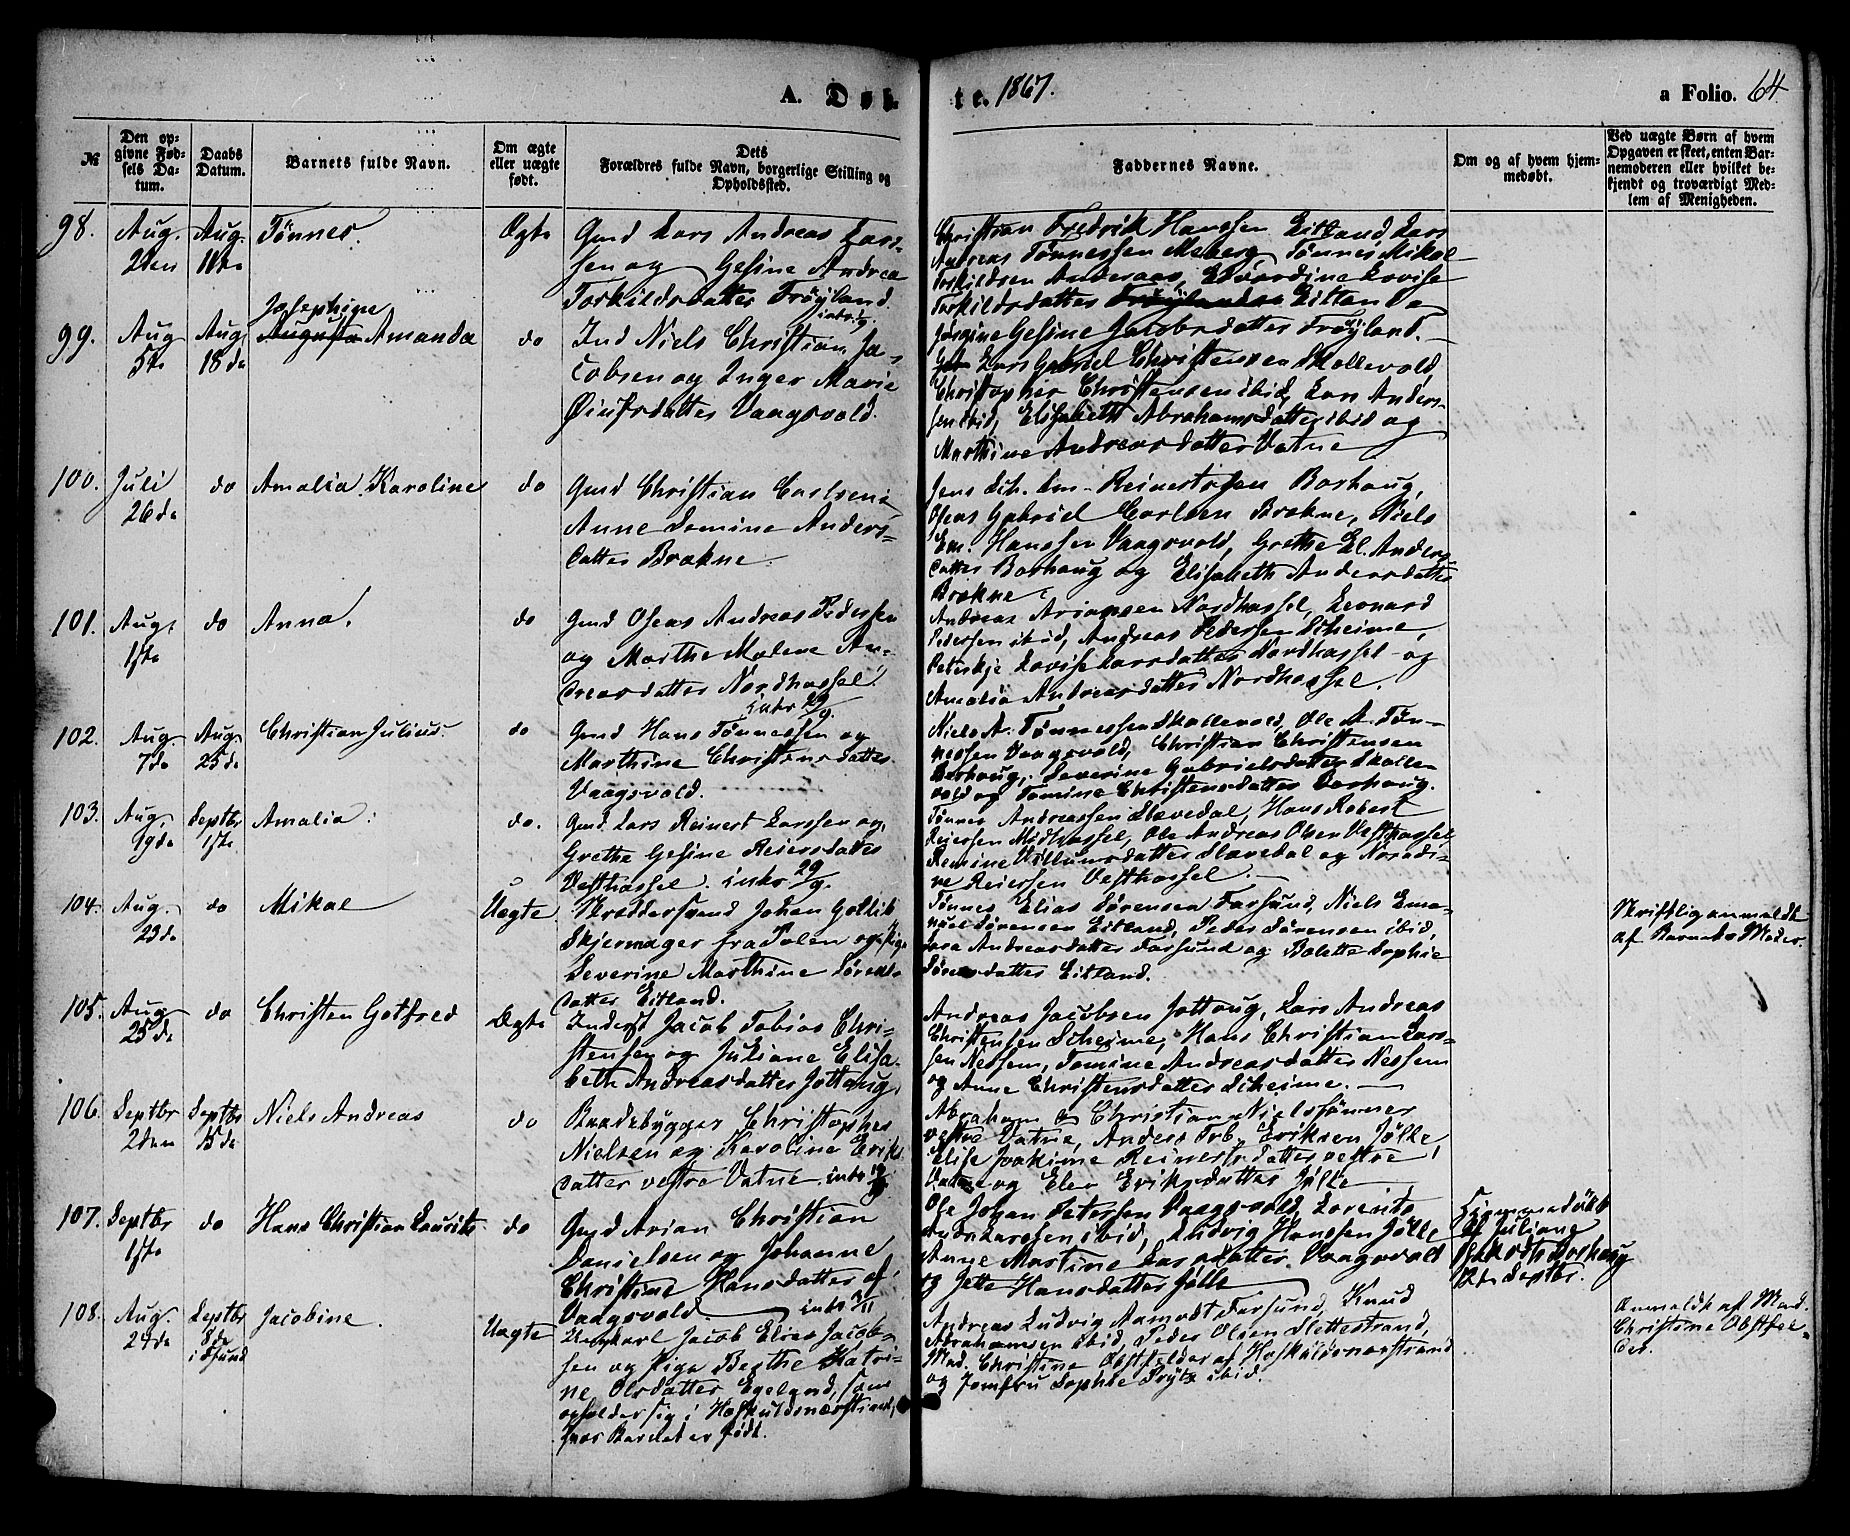 A. Døbte. 1867.
a Folio. 64.
№
Den opgivne Fødsels Datum.
Daabs Datum.
Barnets fulde Navn.
Om ægte eller uægte født.
Dets Forældres fulde Navn, borgerlige Stilling og Opholdssted.
Faddernes Navne.
Om og af hvem hjemmedøbt.
Ved uægte Børn af hvem Opgaven er skeet, enten Barnemoderen eller hvilket bekjendt og troværdigt Medlem af Menigheden.
98. Aug. 2den Aug. 18de Tønnes. Ægte
Gmd Lars Andreas Lars-
sen og Gesine Andrea
Torkildsdatter Trøyland.
Christian Fredrik Hanssen Eitland, Lars
Andreas Tønnessen Meberg, Tønnes Mikal
Torkildsen Anderaas, Edvardine Lovise
Torkildsdatter Eitland og
Jørgine Gesine Jacobsdatter Trøyland.
99. Aug 5te Aug 18de Josephine Augusta Amanda do
Ind Niels Christian Ja-
cobsen og Inger Marie
Øiufsdatter Vaagsvold.
Lars Gabriel Christensen Skollevold,
Christopher Christensen ibid, Lars Anders-
sen ibid, Elisabeth Abrahamsdatter ibid og
Marthine Andreasdatter Vatne
100. Juli 26de do Amalia Karoline do
Gmd Christian Carlsen &
Anne Domine Anders-
datter Brekne.
Jens Reinertssen Borhaug,
Oseas Gabriel Carlsen Brekne, Niels
Em. Hanssen Vaagsvold, Grethe El. Anders-
datter Borhaug og Elisabeth Andersdatter
Brekne.
101. Aug. 1ste do Anna. do
Gmd Oseas Andreas Pedersen
og Marthe Malene An-
dreasdatter Nordhassel.
intr 29/9.
Andreas Arianssen Nordhassel, Leonard
Pedersen ibid, Andreas Pedersen Scheime,
Peterikje Lovise Larsdatter Nordhassel og
Amalia Andreasdatter Nordhassel.
102. Aug. 7de Aug 25de Christian Julius. do
Gmd Hans Tønnessen og
Marthine Christensdatter
Vaagsvold.
Niels A. Tønnessen Skollevold, Ole A. Tøn-
nessen Vaagsvold, Christian Christensen
Borhaug, Severine Gabrielsdatter Skolle-
vold og Tomine Christensdatter Borhaug.
103. Aug 19de Septbr 1ste Amalia. do.
Gmd. Lars Reinert Larssen og
Grethe Gesine Reiersdatter
Vesthassel. intr 29/9.
Tønnes Andreassen Slevedal, Hans Robert
Reiersen Midthassel, Ole Andreas Olsen Vesthassel,
Villumsdatter Slevedal og
Reiersen Vesthassel.
104. Aug. 23de do Mikal Uægte
Skræddersvend Johan Gotlieb
Skjermager fra Polen og Pige
Severine Marthine Sørens-
datter Eitland.
Tønnes Elias Sørensen Farsund, Niels Ema-
nuel Sørensen Eitland, Peder Sørensen ibid,
Sara Andreasdatter Farsund og Bolette Sophie
Sørensdatter Eitland.
Skriftlig anmeldt
af Barnets Moder.
105. Aug 25de do Christen Gotfred Ægte
Inderst Jacob Tobias Chri-
stensen og Juliane Elisa-
beth Andreasdatter Jøttaug.
Andreas Jacobsen Jøttaug, Lars Andreas
Christensen Scheime, Hans Christian Lars-
sen Nessem, Tomine Andreasdatter Nessem
og Anne Christensdatter Scheime.
106. Septbr 2den Septbr 15de Niels Andreas do
Baadebygger Christopher
Nielsen og Karoline Eriks-
datter vestre Vatne. intr
Abraham & Christian Nielssønner
vestre Vatne, Anders Trb. Eriksen Jølle,
Elise Joakime Reinertsdatter vestre
Vatne og Elev Eriksdatter Jølle
107. Septbr 1ste do Hans Christian Lauritz do
Gmd Arian Christian
Danielsen og Johanne
Christine Hansdatter af
Vaagsvold. intr 3/11
Ole Johan Petersen Vaagsvold, Lorents
Andr. Larssen ibid, Ludvig Hanssen Jølle,
Anne Martine Larsdatter Vaagsvold
og Jette Hansdatter Jølle
Hjemmedøbt
af Juliane
Borhaug
Septbr.
108. Aug. 24de Septbr 8de i Fsund Jacobine. Uægte
Ungkarl Jacob Elias Jacob-
sen og Pige Berthe Katri-
ne Olsdatter Egeland, som
opholder sig i Hoskuldsnærstrand,
hvor Barnet er født.
Andreas Ludvig Aamodt Farsund, Knud
Abrahamsen ibid, Peder Olsen Slettestrand,
Mad. Christine Obstfelder af Hoskuldsnærstrand
og Jomfru Sophie Prytz ibid.
Anmeldt af Mad.
Christine Obstfel-
der.